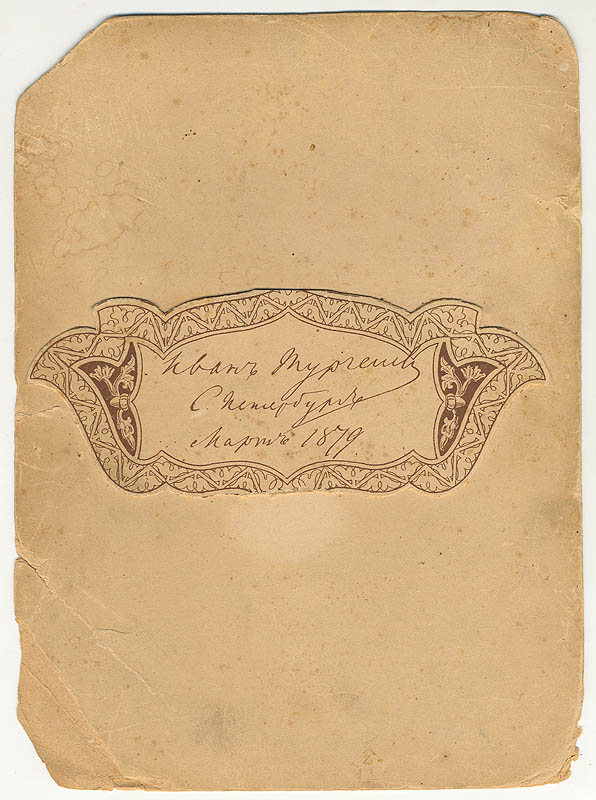 Иванъ Тургенев
С. Петербургъ
Мартъ 1879.